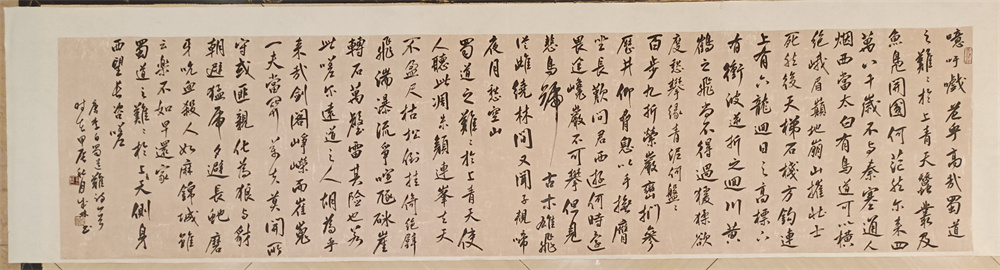 噫吁戯危乎高哉蜀道
之難〻於上青天蠶叢及
魚鳧開國何茫然尔来四
萬八千歳不与秦塞通人
烟西當太白有鳥道可以横
绝峨眉巔地崩山摧壮士
死然後天梯石棧方钩連
上有六龍迴日之高標下
有衝波逆折之迴川黄
鶴之飛尚不得過猿猱欲
度愁攀缘青泥何盤〻
百步九折縈巖巒捫參
歷井仰脅息以手撫膺
坐長歎问君西遊何時还
畏途巉巖不可攀但見
悲鳥號古木雄飛
従雌繞林间又闻子規啼
夜月愁空山
蜀道之難〻於上青天使
人聽此凋朱顏連峯去天
不盈尺枯松倒挂倚绝壁
飛湍瀑流争喧豗砯崖
轉石萬壑雷其險也若
此嗟尔遠道之人胡為乎
来哉劍阁崢嶸而崔嵬
一夫當関萬夫莫開所
守或匪親化為狼与豺
朝避猛虎夕避長蛇磨
牙吮血殺人如麻錦城雖
云樂不如早還家
蜀道之難〻於上天側身
西望长咨嗟
唐李白蜀道難诗一首
时在甲辰秋月書